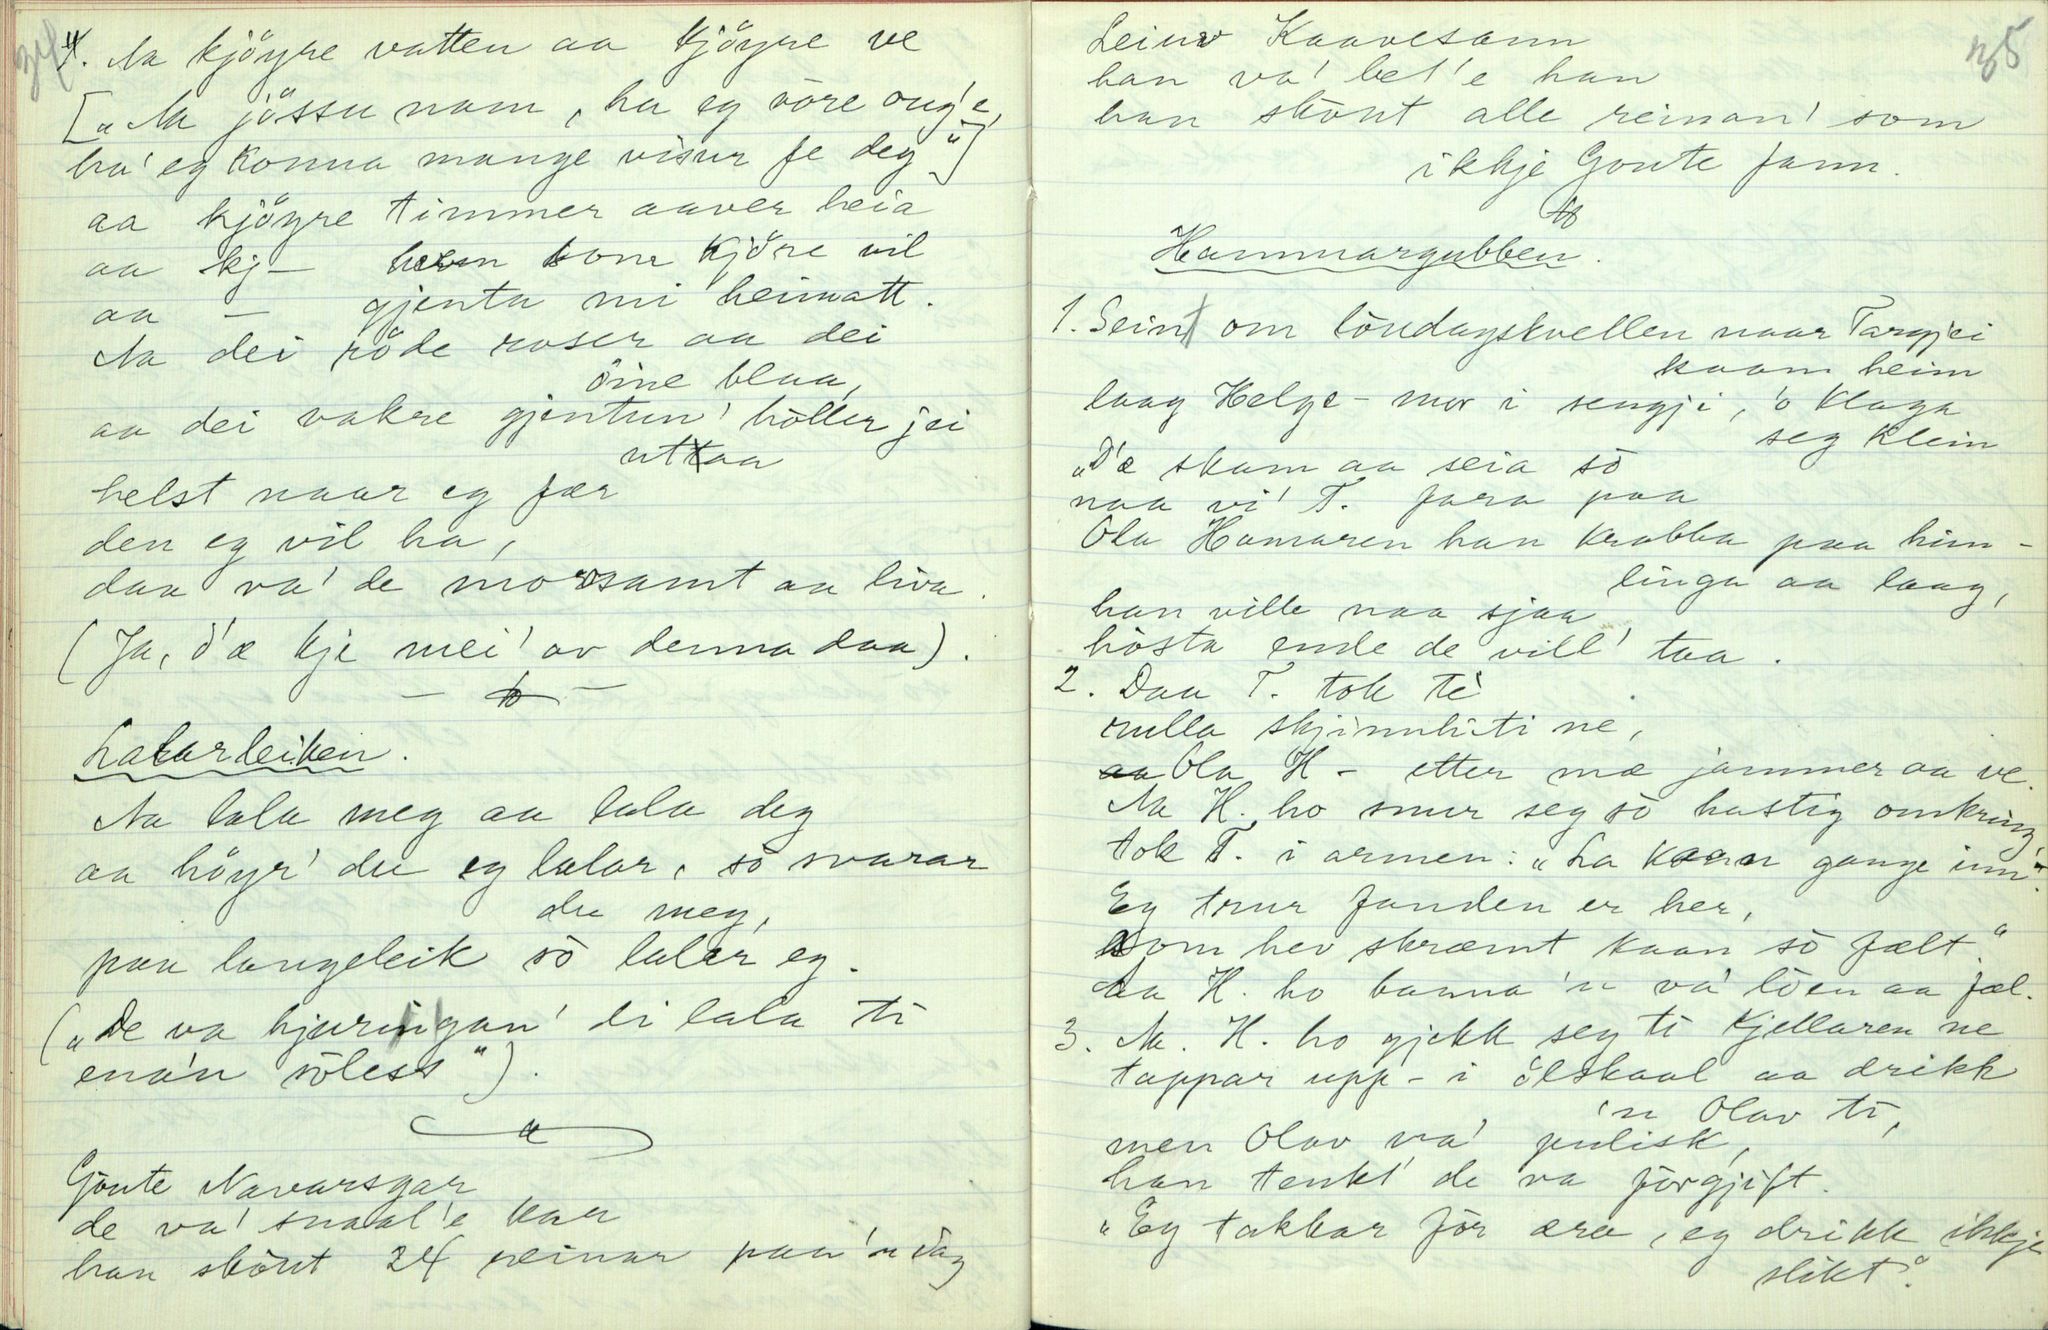 34
4. Aa kjöyre vatten aa kjöyre ve
[„Aa jössu nam, ha eg vöre ong'e,
ha' eg konna mange visur fe deg"]
aa kjöyre timmer aaver heia
aa kj — hem som kjöre vil
aa — gjenta mi heimatt.
Aa dei röde roser aa dei
öine blaa,
aa dei vakre gjentun' höller jei
uttaa
helst naar eg fær
den eg vil ha,
daa va' de morosamt aa liva.
(Ja, d'æ kje mei' av denna daa).
Lalarleiken.
Aa lala meg aa lala deg
aa höyr' du eg lalar, sò svarar
du meg,
paa langeleik sò lalar eg.
(„De va hjuringan' di lala ti
enán söless").
Gònte Navarsgar
de va' snaal'e kar
han skönt 24 reinar paa 'n dag
35
Leinv Kaavesann
han va' bet'e han
han skönt alle reinan' som
ikkje Gonte fann.
Hammargubben.
1. Seint om löndagskvellen naar Targjei
kaam heim
laag Helge-mor i sengji, 'o klaga
seg klein
„D'æ skam aa seia sò
naa vi' T. fara paa
Ola Hamaren han krabba paa him-
linga aa laag,
han ville naa sjaa
hòsta ende de vill' taa.
2. Daa T. tok té
rulla skjinnhiti ne,
Ola H – etter mæ jammer aa ve.
Aa H. ho snur seg sò hastig omkring,
tok T. i armen: „La kaan gange inn".
Eg trur fanden er her,
som hev skræmt kaan sò fælt."
Aa H. ho banna 'n va' löen aa fæl.
3. Aa. H. ho gjekk seg ti kjellaren ne
tappar upp – i ölskaal aa drikk
'n Olav ti,
men Olav va' pulisk,
han tenkt' de va förgjift.
„Eg takkar för æra, eg drikk ikkje
slikt".